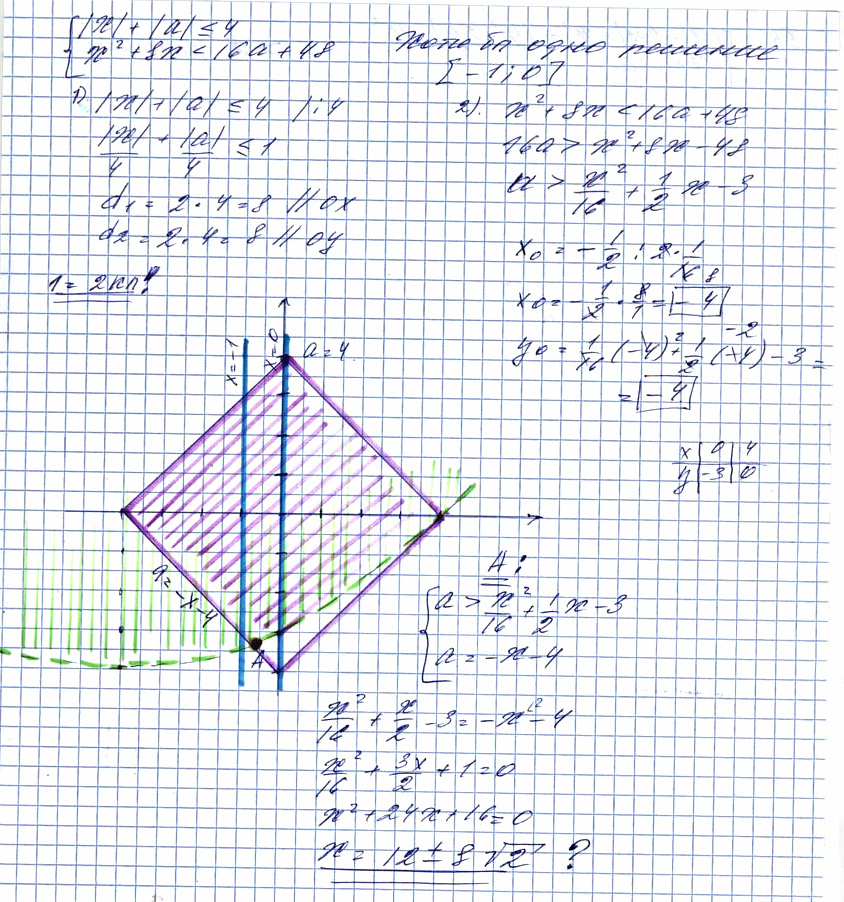 { |x| + |a| ≤ 4
x² + 8x < 16a + 48
хотя бы одно решение
[-1; 0]
1) |x| + |a| ≤ 4 | : 4
|x|/4 + |a|/4 ≤ 1
d₁ = 2 · 4 = 8 // OX
d₂ = 2 · 4 = 8 // OY
1 = 2 кл!
2). x² + 8x < 16a + 48
16a > x² + 8x - 48
a > x²/16 + 1/2 x - 3
x₀ = - 1/2 : 2 · 1/16 8
x₀ = - 1/2 · 8/1 = - 4
y₀ = 1/16 (-4)² + 1/2 (-4) - 3 =
-2
= - 4
x | 0 | 4
y | -3 | 0
x = -1
x = 0
a = 4
a = -x - 4
A
A:
{ a > x²/16 + 1/2 x - 3
a = -x - 4
x²/16 + x/2 - 3 = -x - 4
x²/16 + 3x/2 + 1 = 0
x² + 24x + 16 = 0
x = 12 ± 8√2 ?